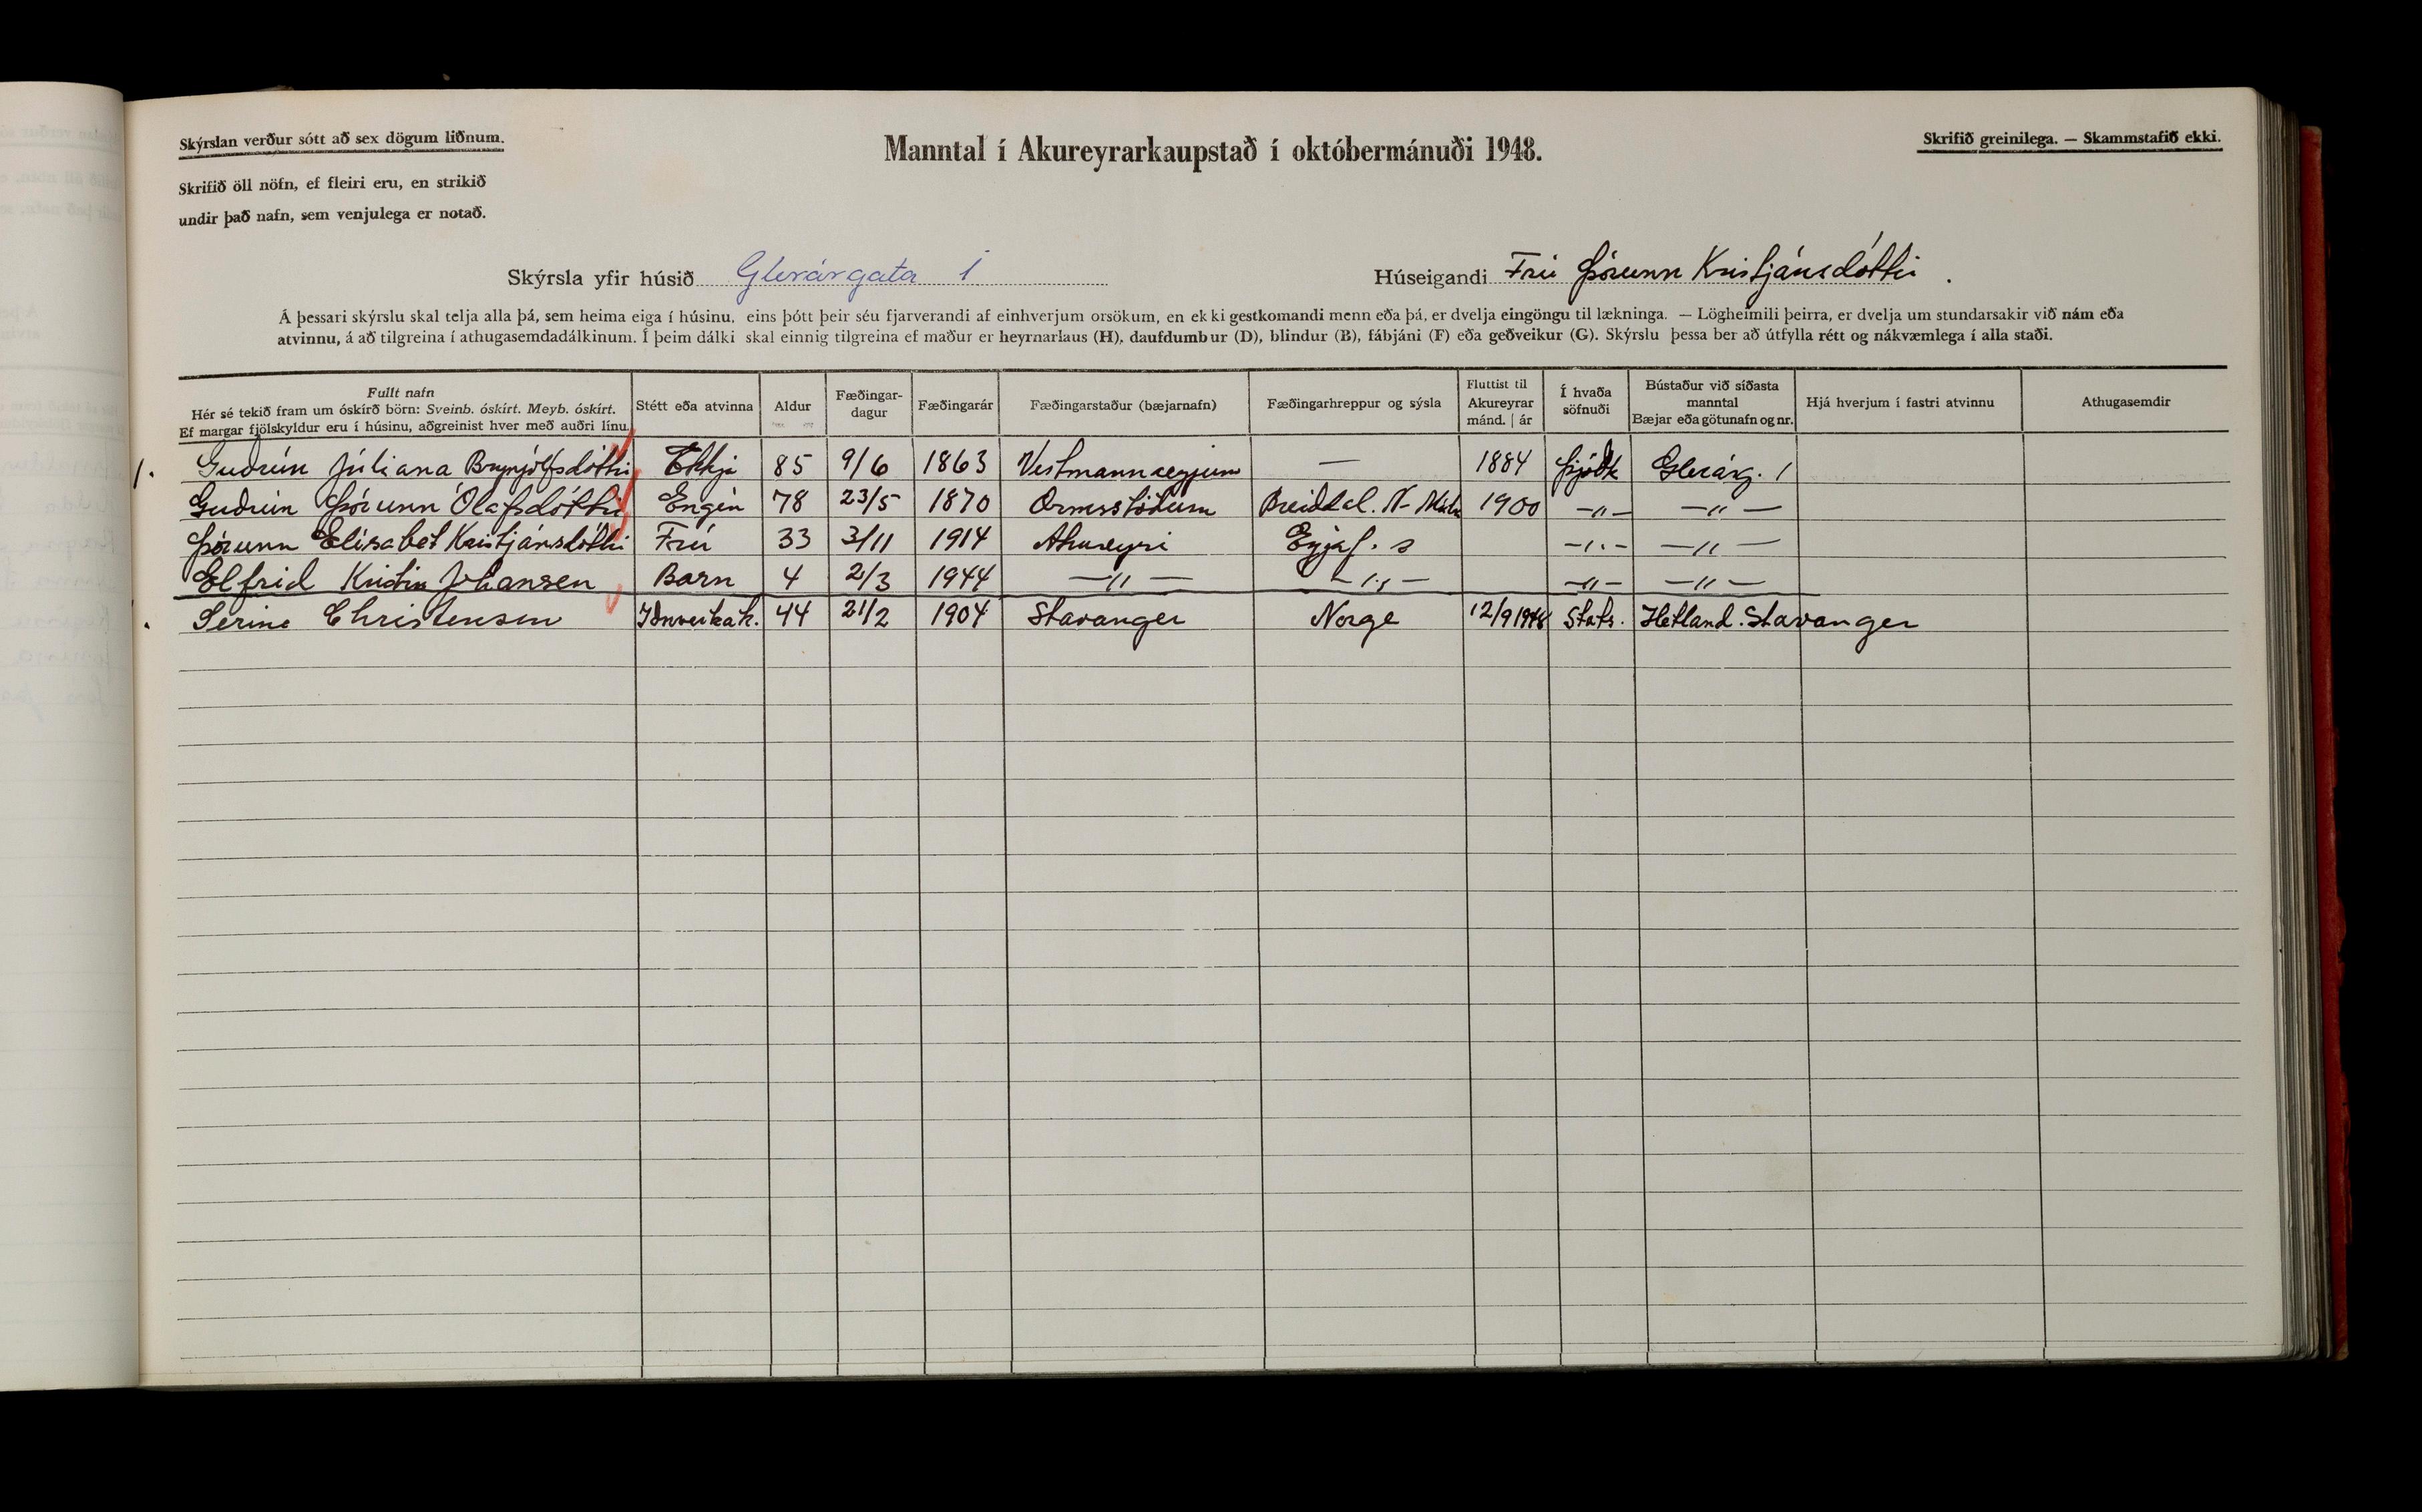 Skýrslan verður sótt að sex dögum liðnum.
Manntal í Akureyrarkaupstað í októbermánuði 1948.
Skrifið greinilega. — Skammstafið ekki.
Skrifið öll nöfn, ef fleiri eru, en strikið
undir það nafn, sem venjulega er notað.
Skýrsla yfir húsið Glerárgata 1
Húseigandi Frú Þórunn Kristjánsdóttir.
Á þessari skýrslu skal telja alla þá, sem heima eiga í húsinu, eins þótt þeir séu fjarverandi af einhverjum orsökum, en ekki gestkomandi menn eða þá, er dvelja eingöngu til lækninga. — Lögheimili þeirra, er dvelja um stundarsakir við nám eða
atvinnu, á að tilgreina í athugasemdadálkinum. Í þeim dálki skal einnig tilgreina ef maður er heyrnarlaus (H), daufdumbur (D), blindur (B), fábjáni (F) eða geðveikur (G). Skýrslu þessa ber að útfylla rétt og nákvæmlega í alla staði.
Fullt nafn
Hér sé tekið fram um óskírð börn: Sveinb. óskírt. Meyb. óskírt.
Ef margar fjölskyldur eru í húsinu, aðgreinist hver með auðri línu.
Stétt eða atvinna
Aldur
Fæðingar-
dagur
Fæðingarár
Fæðingarstaður (bæjarnafn)
Fæðingarhreppur og sýsla
Fluttist til
Akureyrar
mánd. | ár
Í hvaða
söfnuði
Bústaður við síðasta
manntal
Bæjar eða götunafn og nr.
Hjá hverjum í fastri atvinnu
Athugasemdir
1. Guðrún Júliana Brynjólfsdóttir Ekkja 85 9/6 1863 Vestmannaeyjum — 1884 Þjóðk Glerárg. 1
Guðrún Þórunn Ólafsdóttir Engin 78 23/5 1870 Ormsstöðum Breiðdal. N-Múla 1900 —〃— —〃—
Þórunn Elísabet Kristjánsdóttir Frú 33 3/11 1914 Akureyri Eyjaf. s —〃— —〃—
Elfrid Kristin Johansen Barn 4 2/3 1944 —〃— —〃— —〃— —〃—
Serine Christensen 44 21/2 1904 Stavanger Norge 12/9 1948 Stats. Hetland. Stavanger